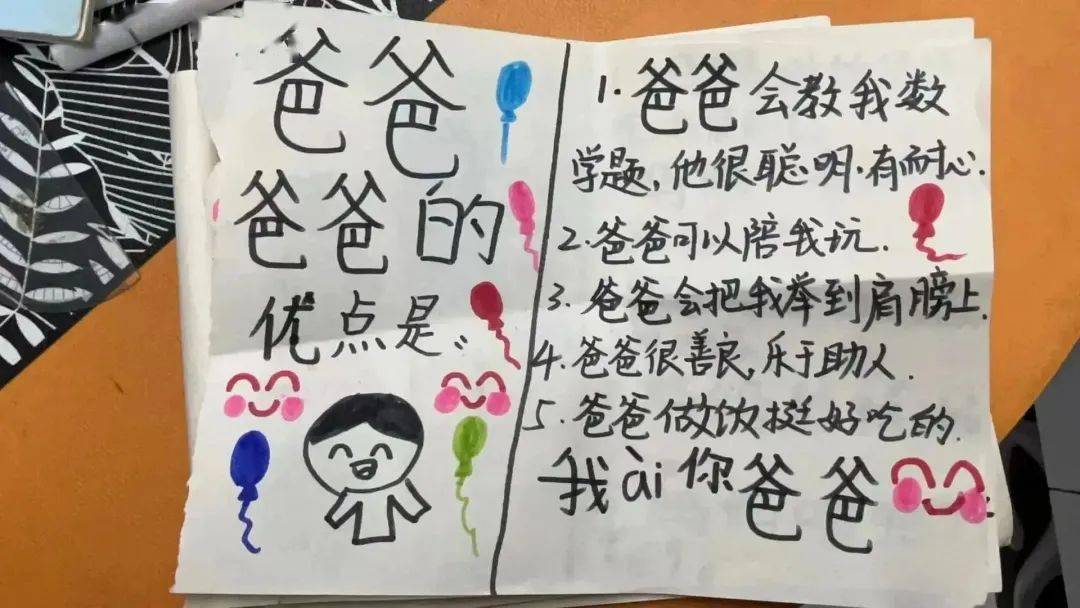 爸爸
爸爸的
优点是:
1.爸爸会教我数
学题,他很聪明.有耐心.
2.爸爸可以陪我玩.
3.爸爸会把我举到肩膀上.
4.爸爸很善良,乐于助人.
5.爸爸做饭挺好吃的.
我ài你爸爸